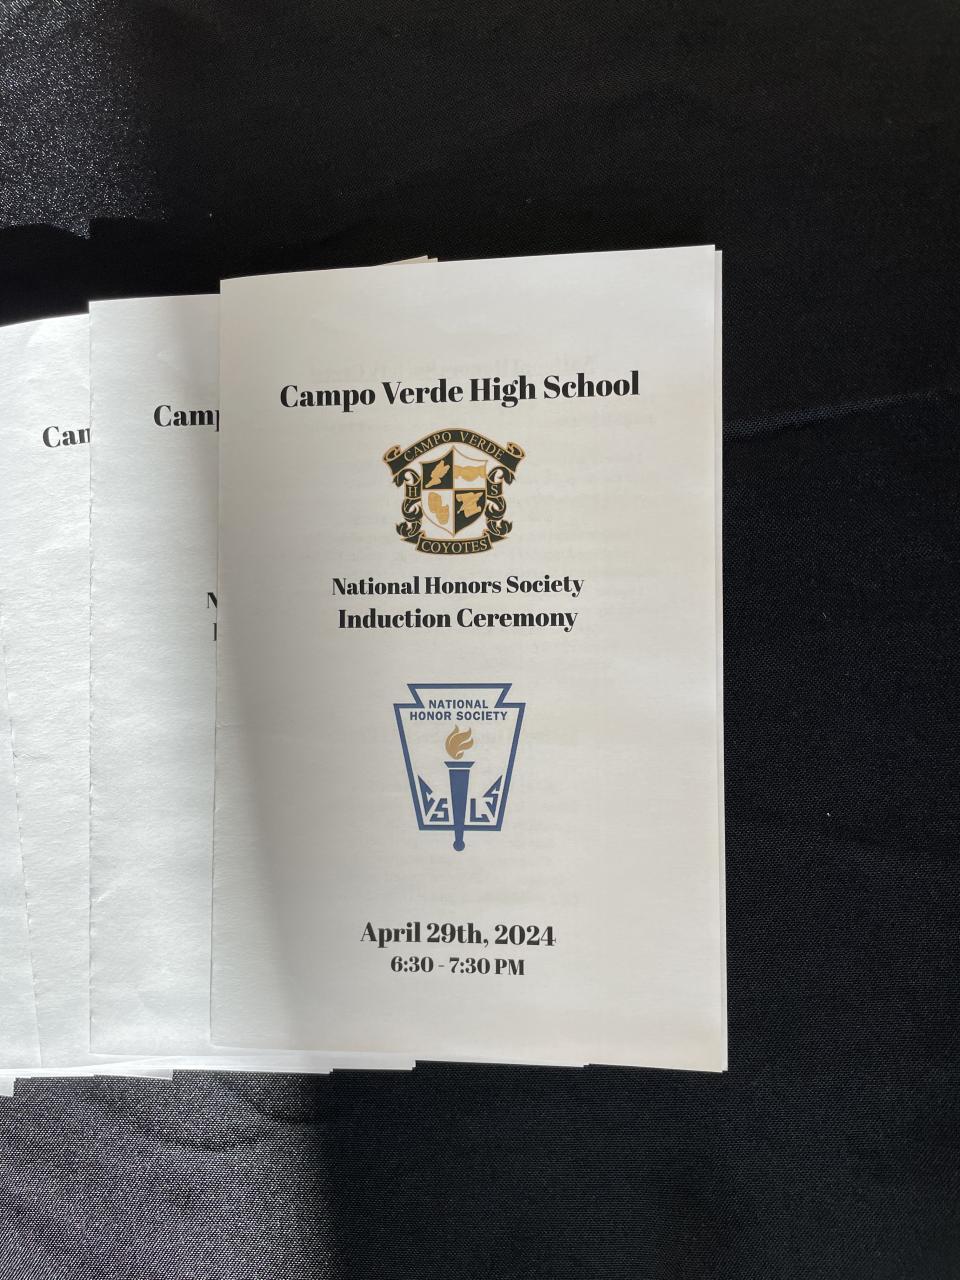 Campo Verde High School
CAMPO VERDE
H S
COYOTES
National Honors Society
Induction Ceremony
NATIONAL
HONOR SOCIETY
C S L S
April 29th, 2024
6:30 - 7:30 PM
Camp
Can